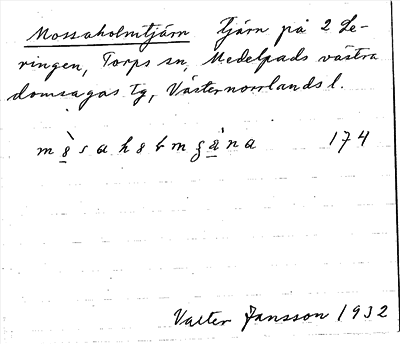 Mossaholmtjärn tjärn på 2 Le-
ringen, Torps sn, Medelpads västra
domsagas tg, Västernorrlands l.
174
Valter Jansson 1932